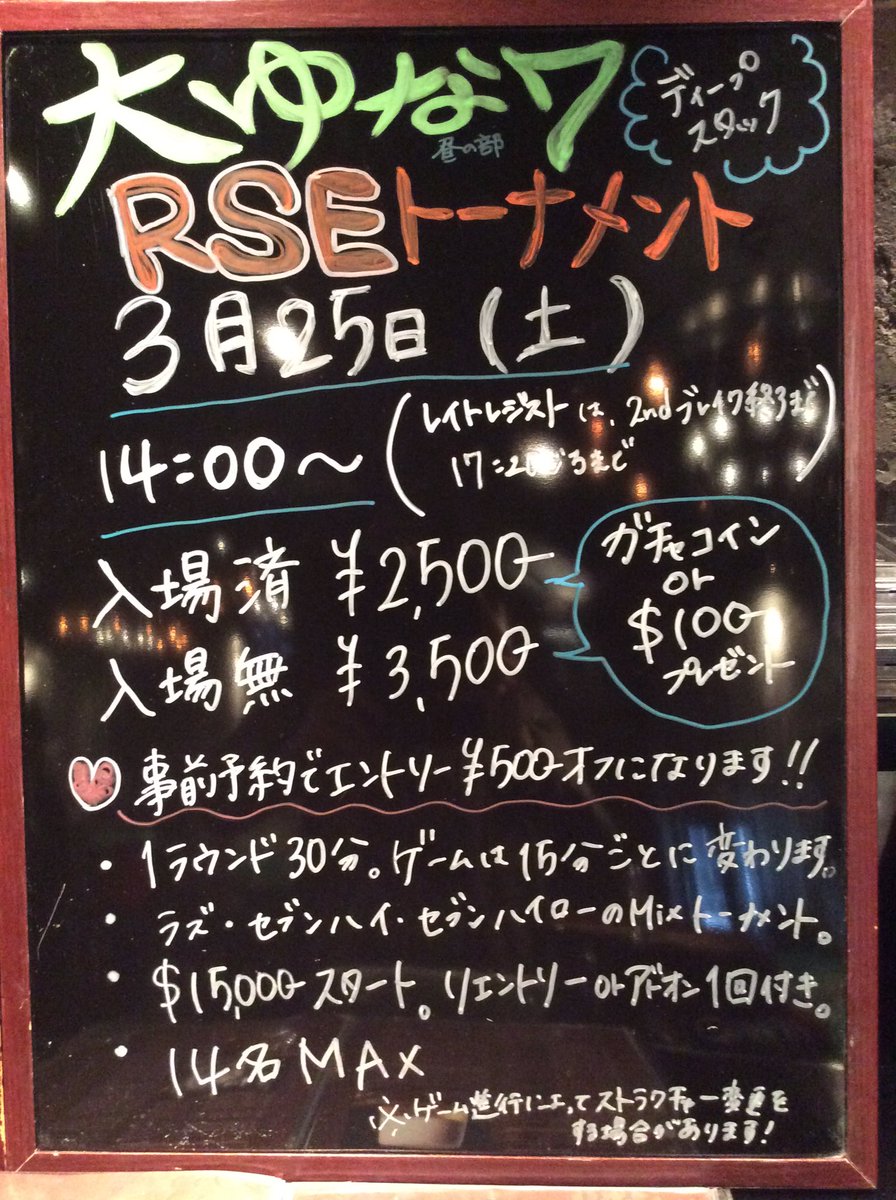 大ゆな7
ディープ
スタック
昼の部
RSEトーナメント
3月25日(土)
14:00〜
(レイトレジストは、2ndブレイク終了まで
17:20ごろまで)
入場済 ¥2,500
入場無 ¥3,500
ガチャコイン
or
$100
プレゼント
事前予約でエントリー¥500オフになります!!
・1ラウンド30分。ゲームは15分ごとに変わります。
・ラズ・セブンハイ・セブンハイローのMixトーナメント。
・$15,000スタート。リエントリーorアドオン1回付き。
・14名MAX
※ゲーム進行によってストラクチャー変更を
する場合があります!